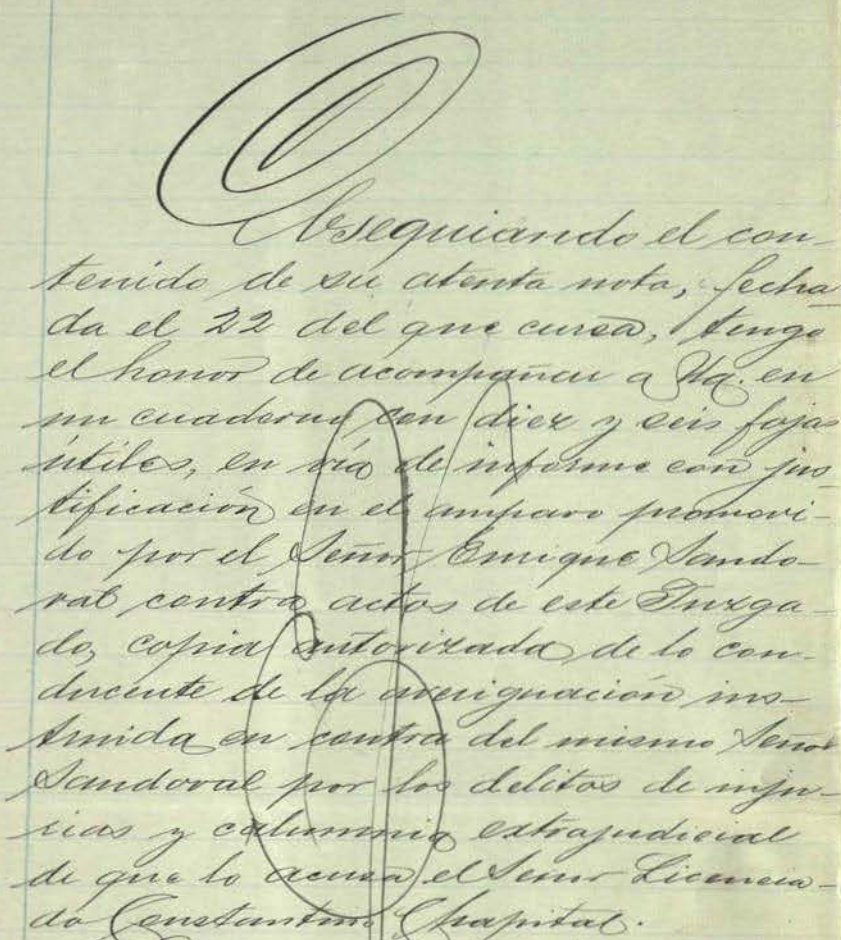 Obsequiando el con-
tenido de su atenta nota, fecha
da el 22 del que cursa, tengo
el honor de acompañar a Ud. en
un cuaderno con diez y seis fojas
útiles, en vía de informe con jus
tificación en el amparo promovi-
do por el Señor Enrique Sando-
val contra actos de este Juzga-
do, copia autorizada de lo con-
ducente de la averiguación ins-
truida en contra del mismo Señor
Sandoval por los delitos de inju-
rias y calumnia extrajudicial
de que lo acusa el Señor Licencia-
do Constantino Chapital.